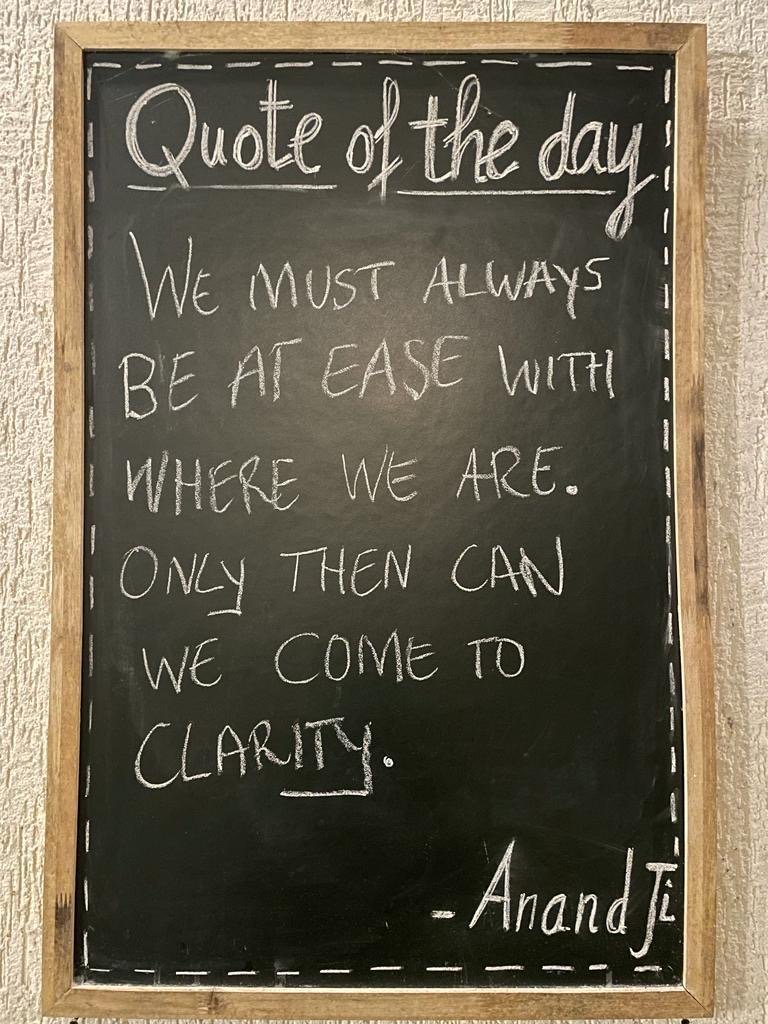 Quote of the day
WE MUST ALWAYS
BE AT EASE WITH
WHERE WE ARE.
ONLY THEN CAN
WE COME TO
CLARITY.
- Anand Ji